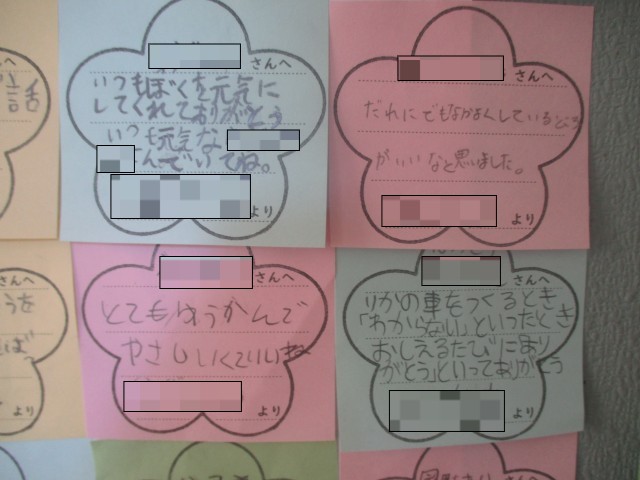 さんへ
いつもぼくを元気に
してくれてありがとう
いつも元気な
んでいてね。
より
さんへ
だれにでもなかよくしているところ
がいいなと思いました。
より
さんへ
とてもゆうかんで
やさしいくていいね
より
さんへ
りかの車をつくるとき
「わからない」といったとき
おしえるたびにあり
がとう」といってありがとう
より
話
うを
ば